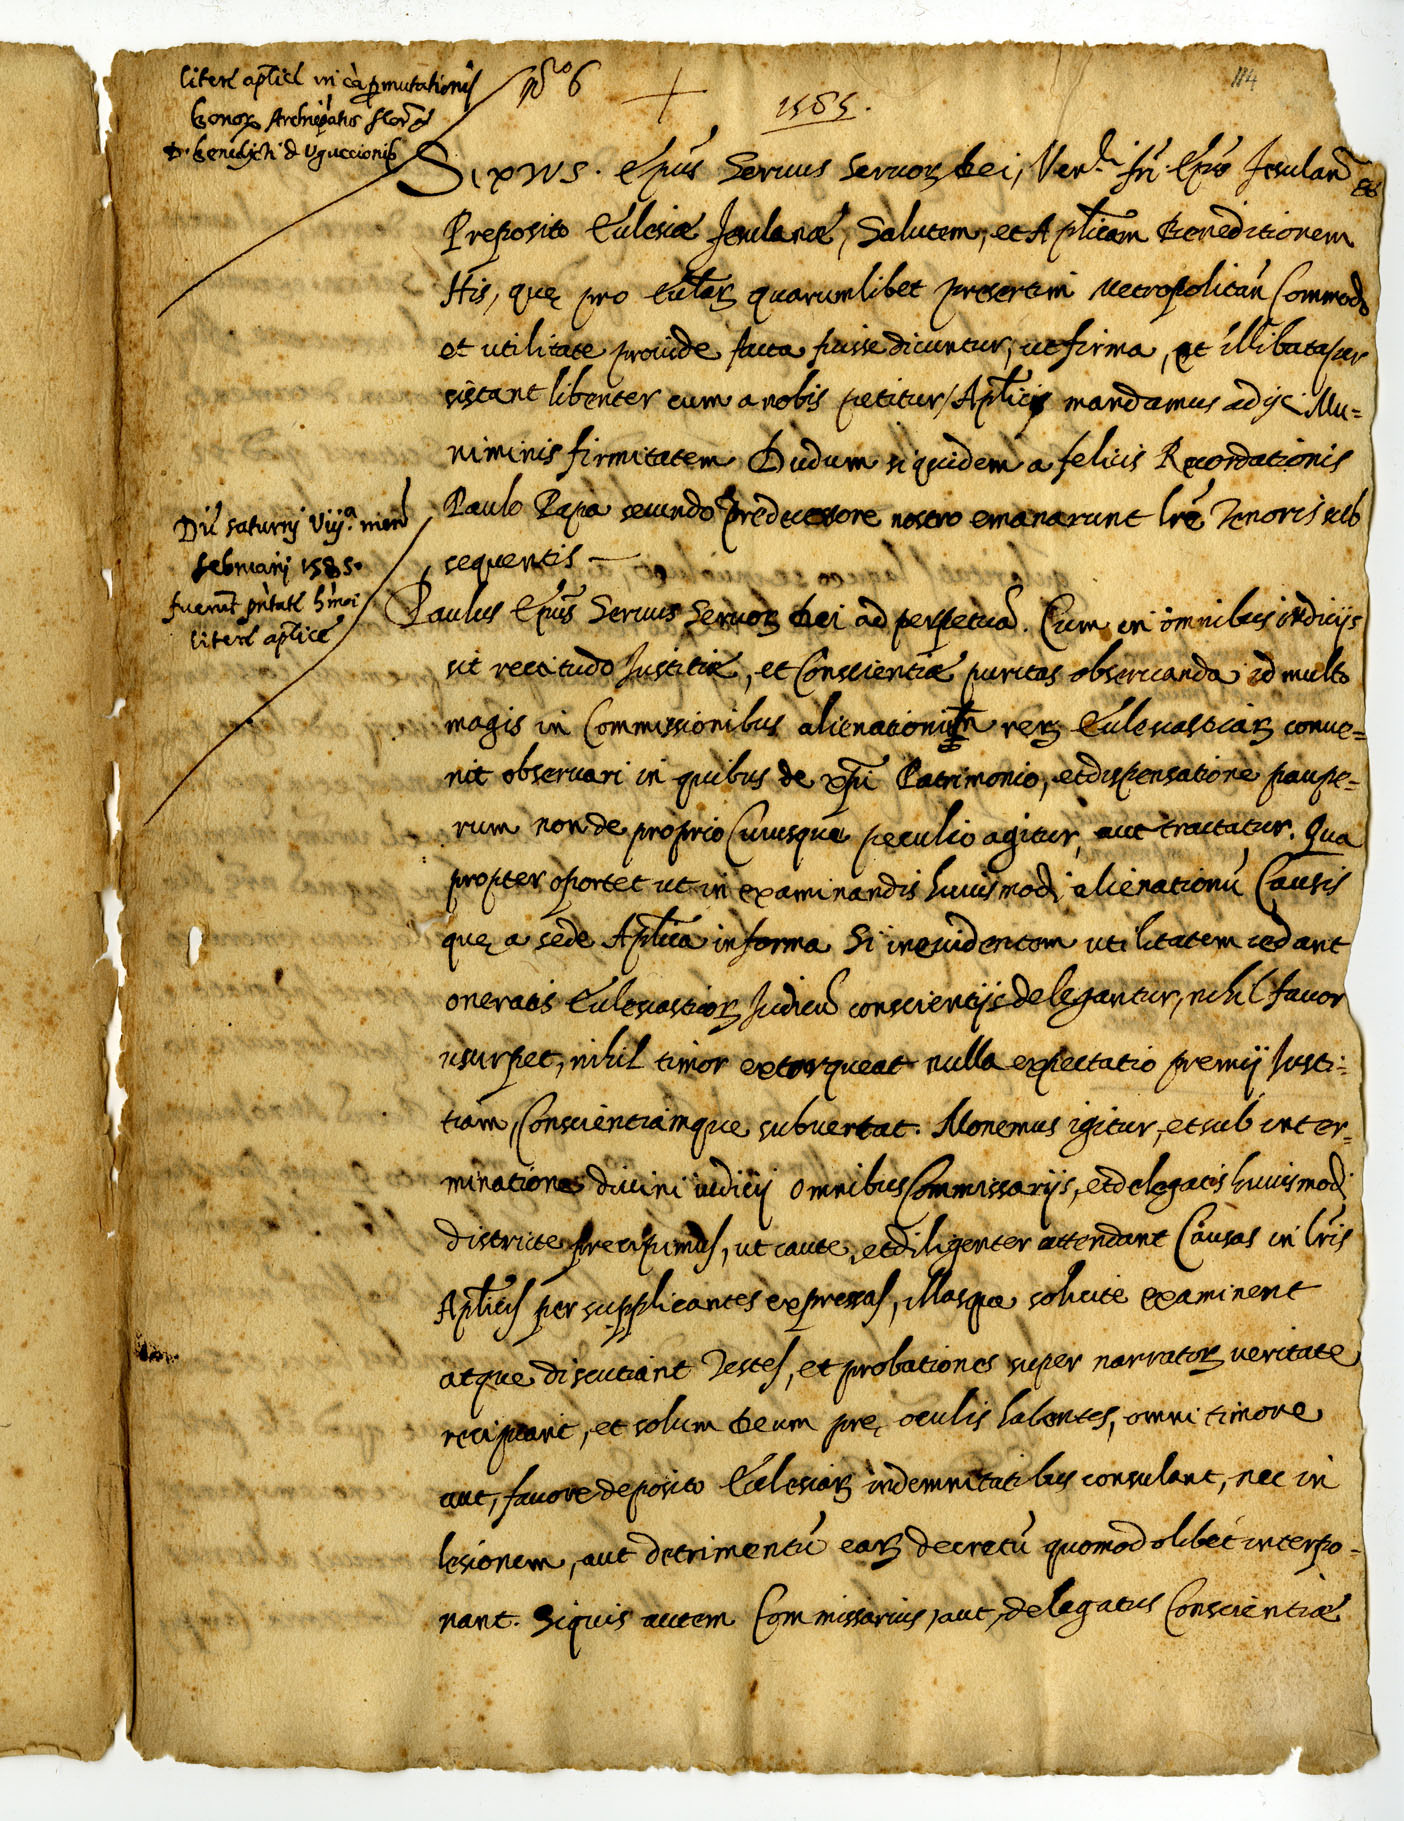 literȩ aplicȩ in cā permutationis
bonoꝝ Archiepatus flor.
D. benedicti de Uguccionibȝ
N.º 6
1585.
114
86
Sixtus. Epūs Servus Servoꝝ Dei, Ven.li fri Epō Fesulan̄
Preposito Ecclesiæ Fesulanæ, Salutem, et Aplicam Benedictionem
His, quę pro Eccłaꝝ quarumlibet presertim Metropolitañ Commodo
et utilitate provide facta fuisse dicuntur, ut firma, et illibata per
sistant libenter cum a nobis petitur, Aplicis mandamus adijci Mu=
niminis firmitatem Dudum siquidem a felicis Recordationis
Paulo Papa secundo Predecessore nostro emanarunt lrē Tenoris sub
sequentis
Die saturnj Viij.ª mens
februarij 1585.
fuerūt pñtate hmōi
literȩ aplicȩ
Paulus Epūs Servus Servoꝝ Dei ad perpetuā. Cum in omnibus iudicijs
sit rectitudo Justitiæ, et Conscientiæ puritas observanda id multo
magis in Commissionibus alienationum reꝝ Ecclesiasticaꝝ conve=
nit observari in quibus de xpi Patrimonio, et dispensatione paupe=
rum non de proprio Cuiusque peculio agitur, aut tractatur. Qua
propter oportet ut in examinandis huiusmodi alienationū Causis
quę a sede Aplica in forma Si in evidentem utilitatem cedant
oneratis Ecclesiasticoꝝ Judicū conscientijs delegantur, nihil favor
usurpet, nihil timor extorqueat nulla expectatio premij Justi=
tiam, Conscientiamque subvertat. Monemus igitur, et sub inter=
minatione divini iudicij omnibus Commissarijs, et delegatis huiusmodi
districte precipimus, ut caute, et diligenter attendant Causas in lris
Aplicis per supplicantes expressas, illasque solicite examinent
atque discutiant Testes, et probationes super narratoꝝ veritate
recipiant, et solum Deum prę oculis habentes, omni timore
aut, favore deposito Ecclesiaꝝ indemnitatibus consulant, nec in
lesionem, aut detrimentū eaꝝ decretū quomodolibet interpo=
nant. Siquis autem Commissarius, aut, delegatus Conscientiæ